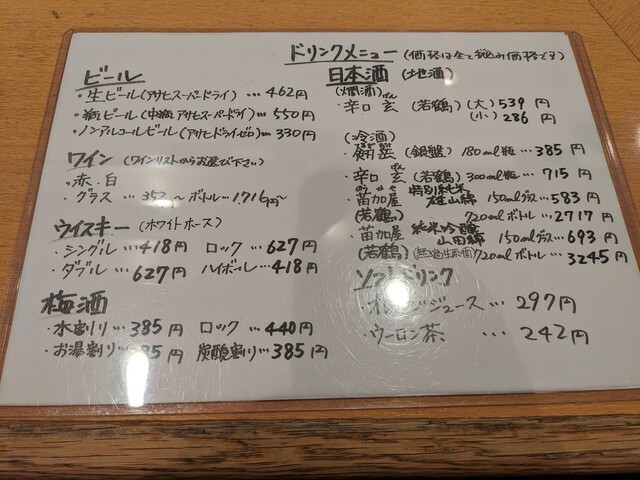 ドリンクメニュー (価格は全て税込み価格です)
ビール
・生ビール(アサヒスーパードライ) … 462円
・瓶ビール(中瓶 アサヒスーパードライ) … 550円
・ノンアルコールビール(アサヒドライゼロ) … 330円
ワイン (ワインリストからお選び下さい)
・赤・白
・グラス … 352〜 ボトル … 1716円〜
ウイスキー (ホワイトホース)
・シングル … 418円 ロック … 627円
・ダブル … 627円 ハイボール … 418円
梅酒
・水割り … 385円 ロック … 440円
・お湯割り 85円 炭酸割り … 385円
日本酒 (地酒)
(燗酒)
・辛口 玄 (若鶴) (大) 539円
(小) 286円
(冷酒)
・剱岳 (銀盤) 180ml瓶 … 385円
・辛口 玄 (若鶴) 300ml瓶 … 715円
・苗加屋 特別純米 雄山錦 150mlグラス … 583円
(若鶴) 720mlボトル … 2717円
・苗加屋 純米吟醸 山田錦 150mlグラス … 693円
(若鶴) 720mlボトル … 3245円
ソフトドリンク
・オレンジジュース … 297円
・ウーロン茶 … 242円